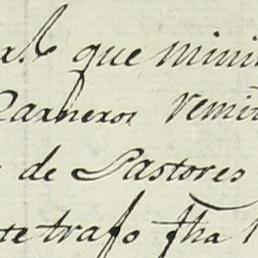 que mini
Carneros remi
de Pastores
te trafo fha